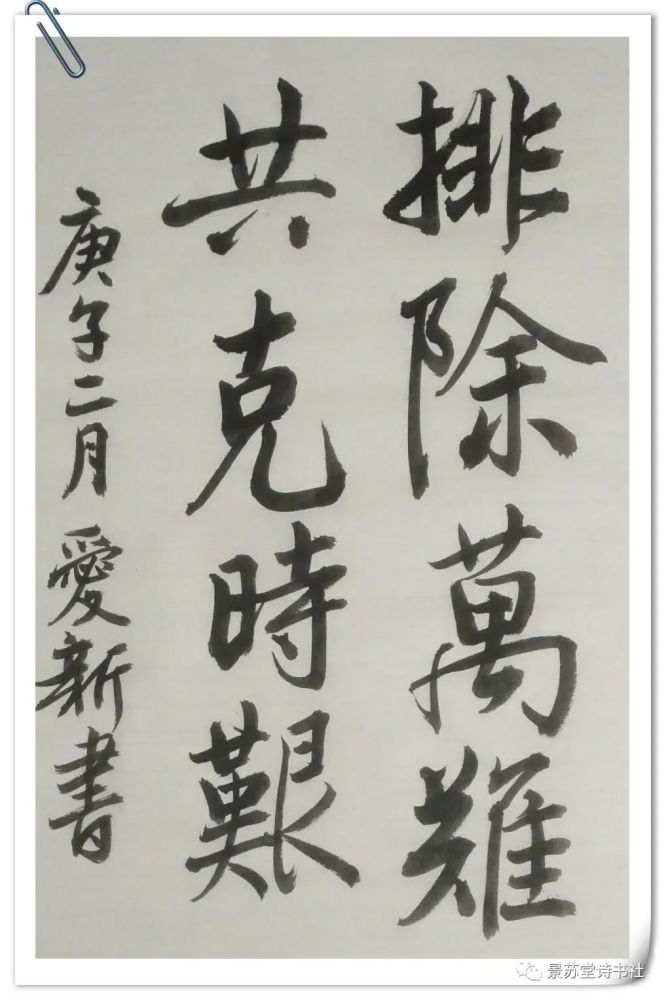 排除萬難
共克時艱
庚午二月愛新書
景苏堂诗书社